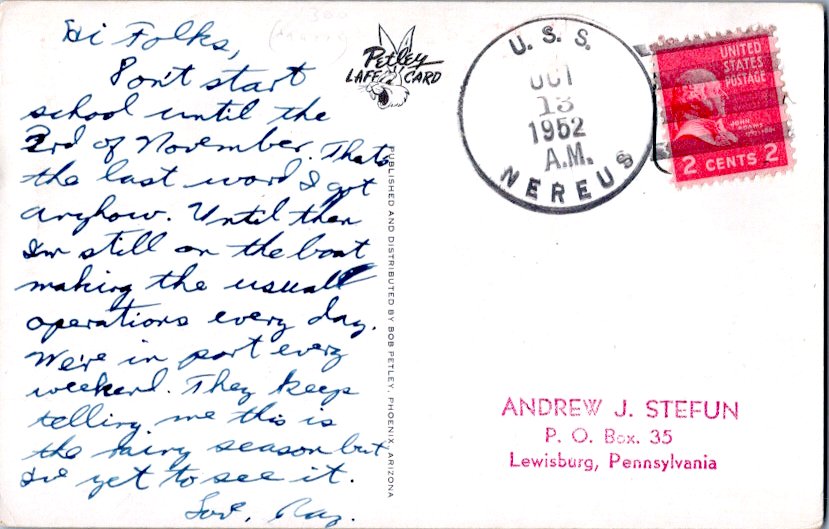 Hi Folks,
Don't start
school until the
3rd of November. That's
the last word I got
anyhow. Until then
I'm still on the boat
making the usual
operations every day.
We're in port every
weekend. They keep
telling me this is
the rainy season but
I've yet to see it.
Love, Ray.
Petley
LAFF CARD
PUBLISHED AND DISTRIBUTED BY BOB PETLEY, PHOENIX, ARIZONA
U. S. S.
OCT
13
1952
A.M.
NEREUS
UNITED
STATES
POSTAGE
JOHN
ADAMS
2 CENTS 2
ANDREW J. STEFUN
P. O. Box. 35
Lewisburg, Pennsylvania